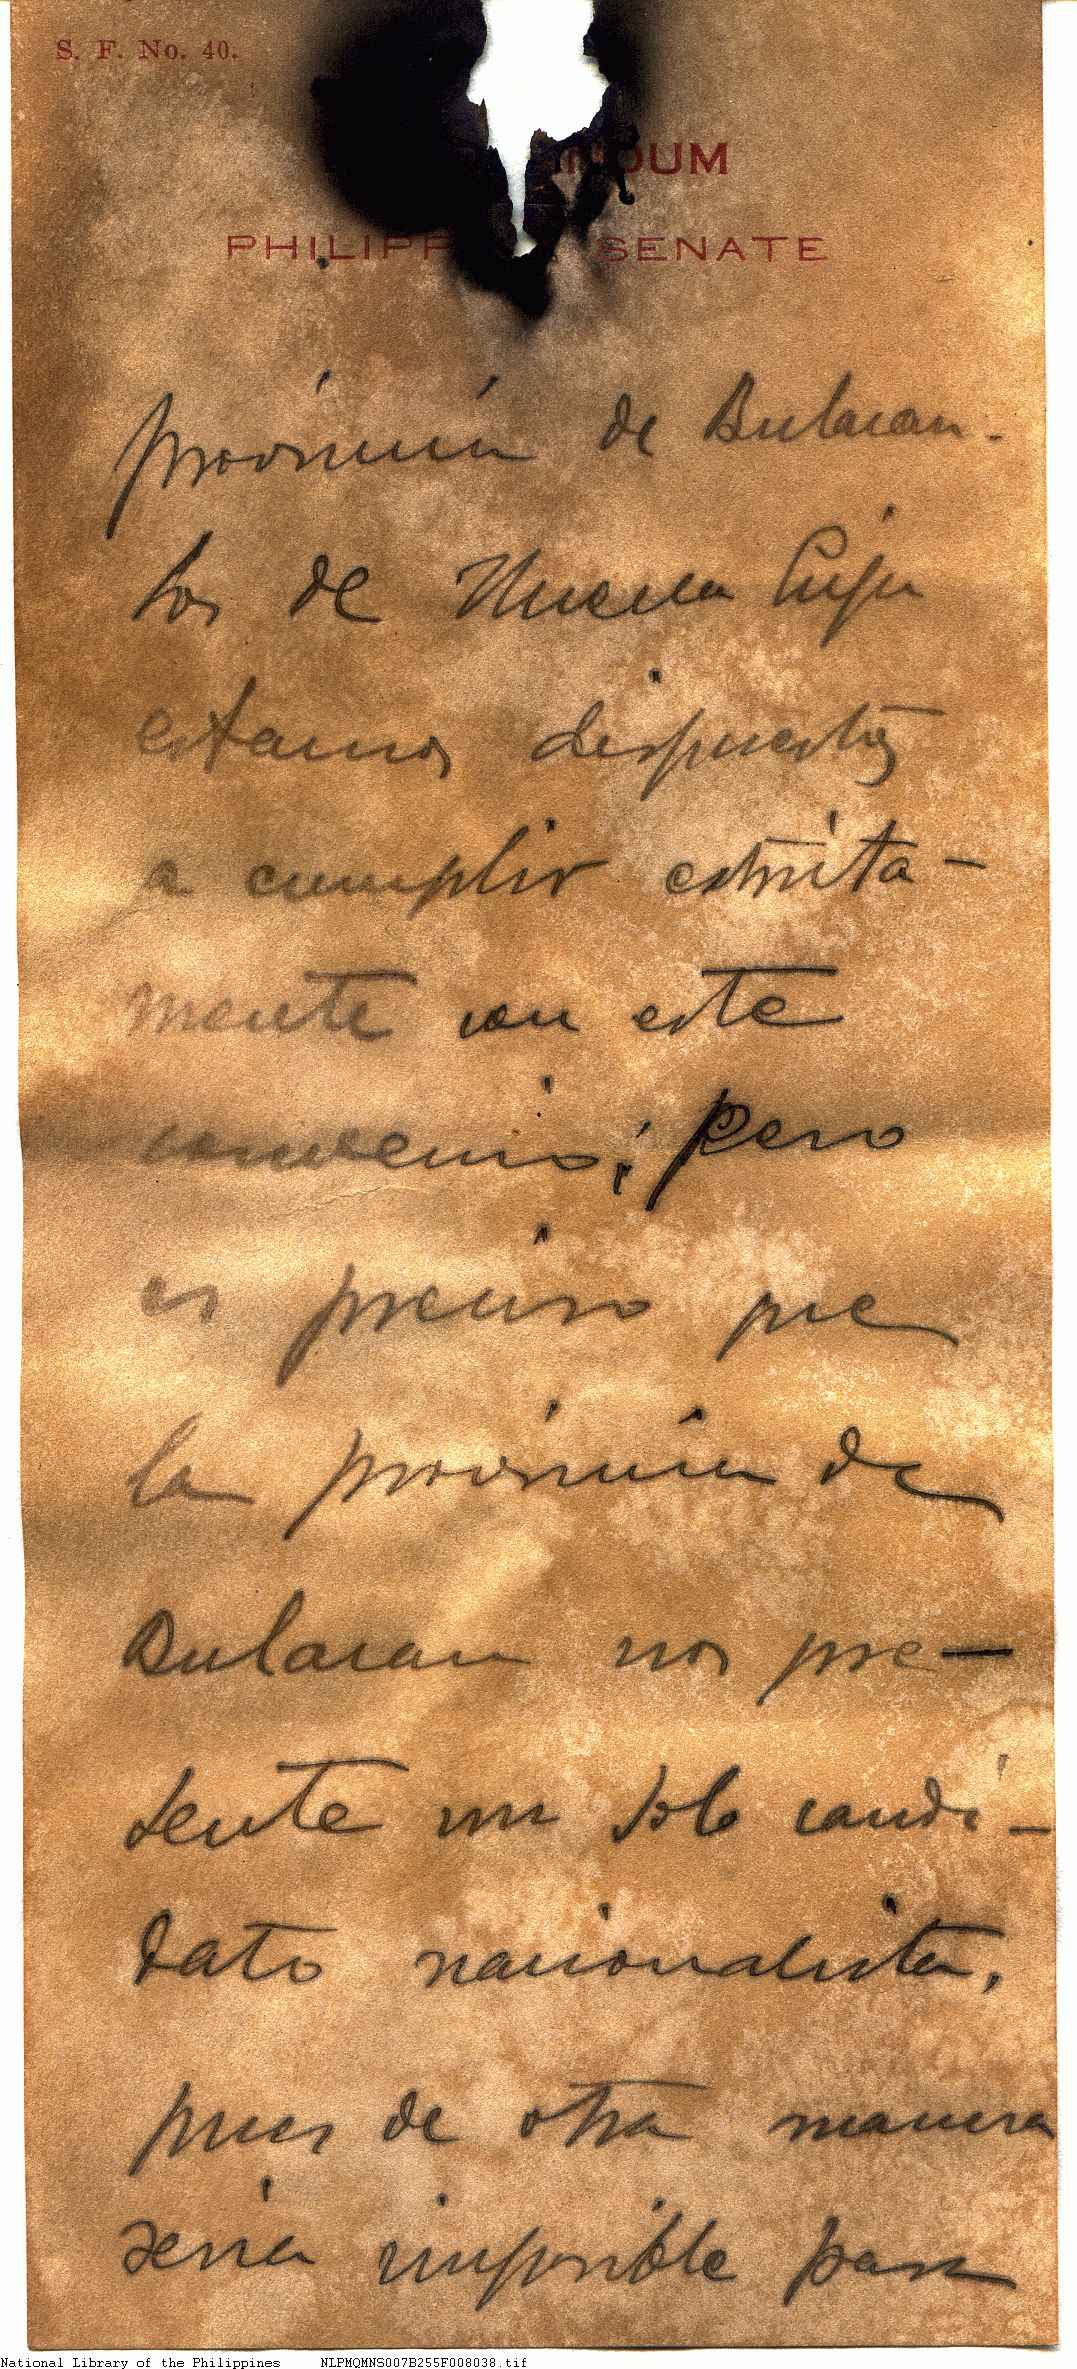 S. F. No. 40.
PHILIPP SENATE
provincia de Bulacan.
Los de Nueva Ecija
estamos dispuestos
a cumplir estricta-
mente con este
convenio; pero
es preciso que
la provincia de
Bulacan nos pre-
sente un solo candi-
dato nacionalista,
pues de otra manera
seria imposible para
National Library of the Philippines NLPMQMNS007B255F008038.tif